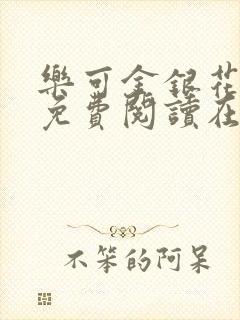 樂可金銀花
免費閱讀在
不笨的阿呆